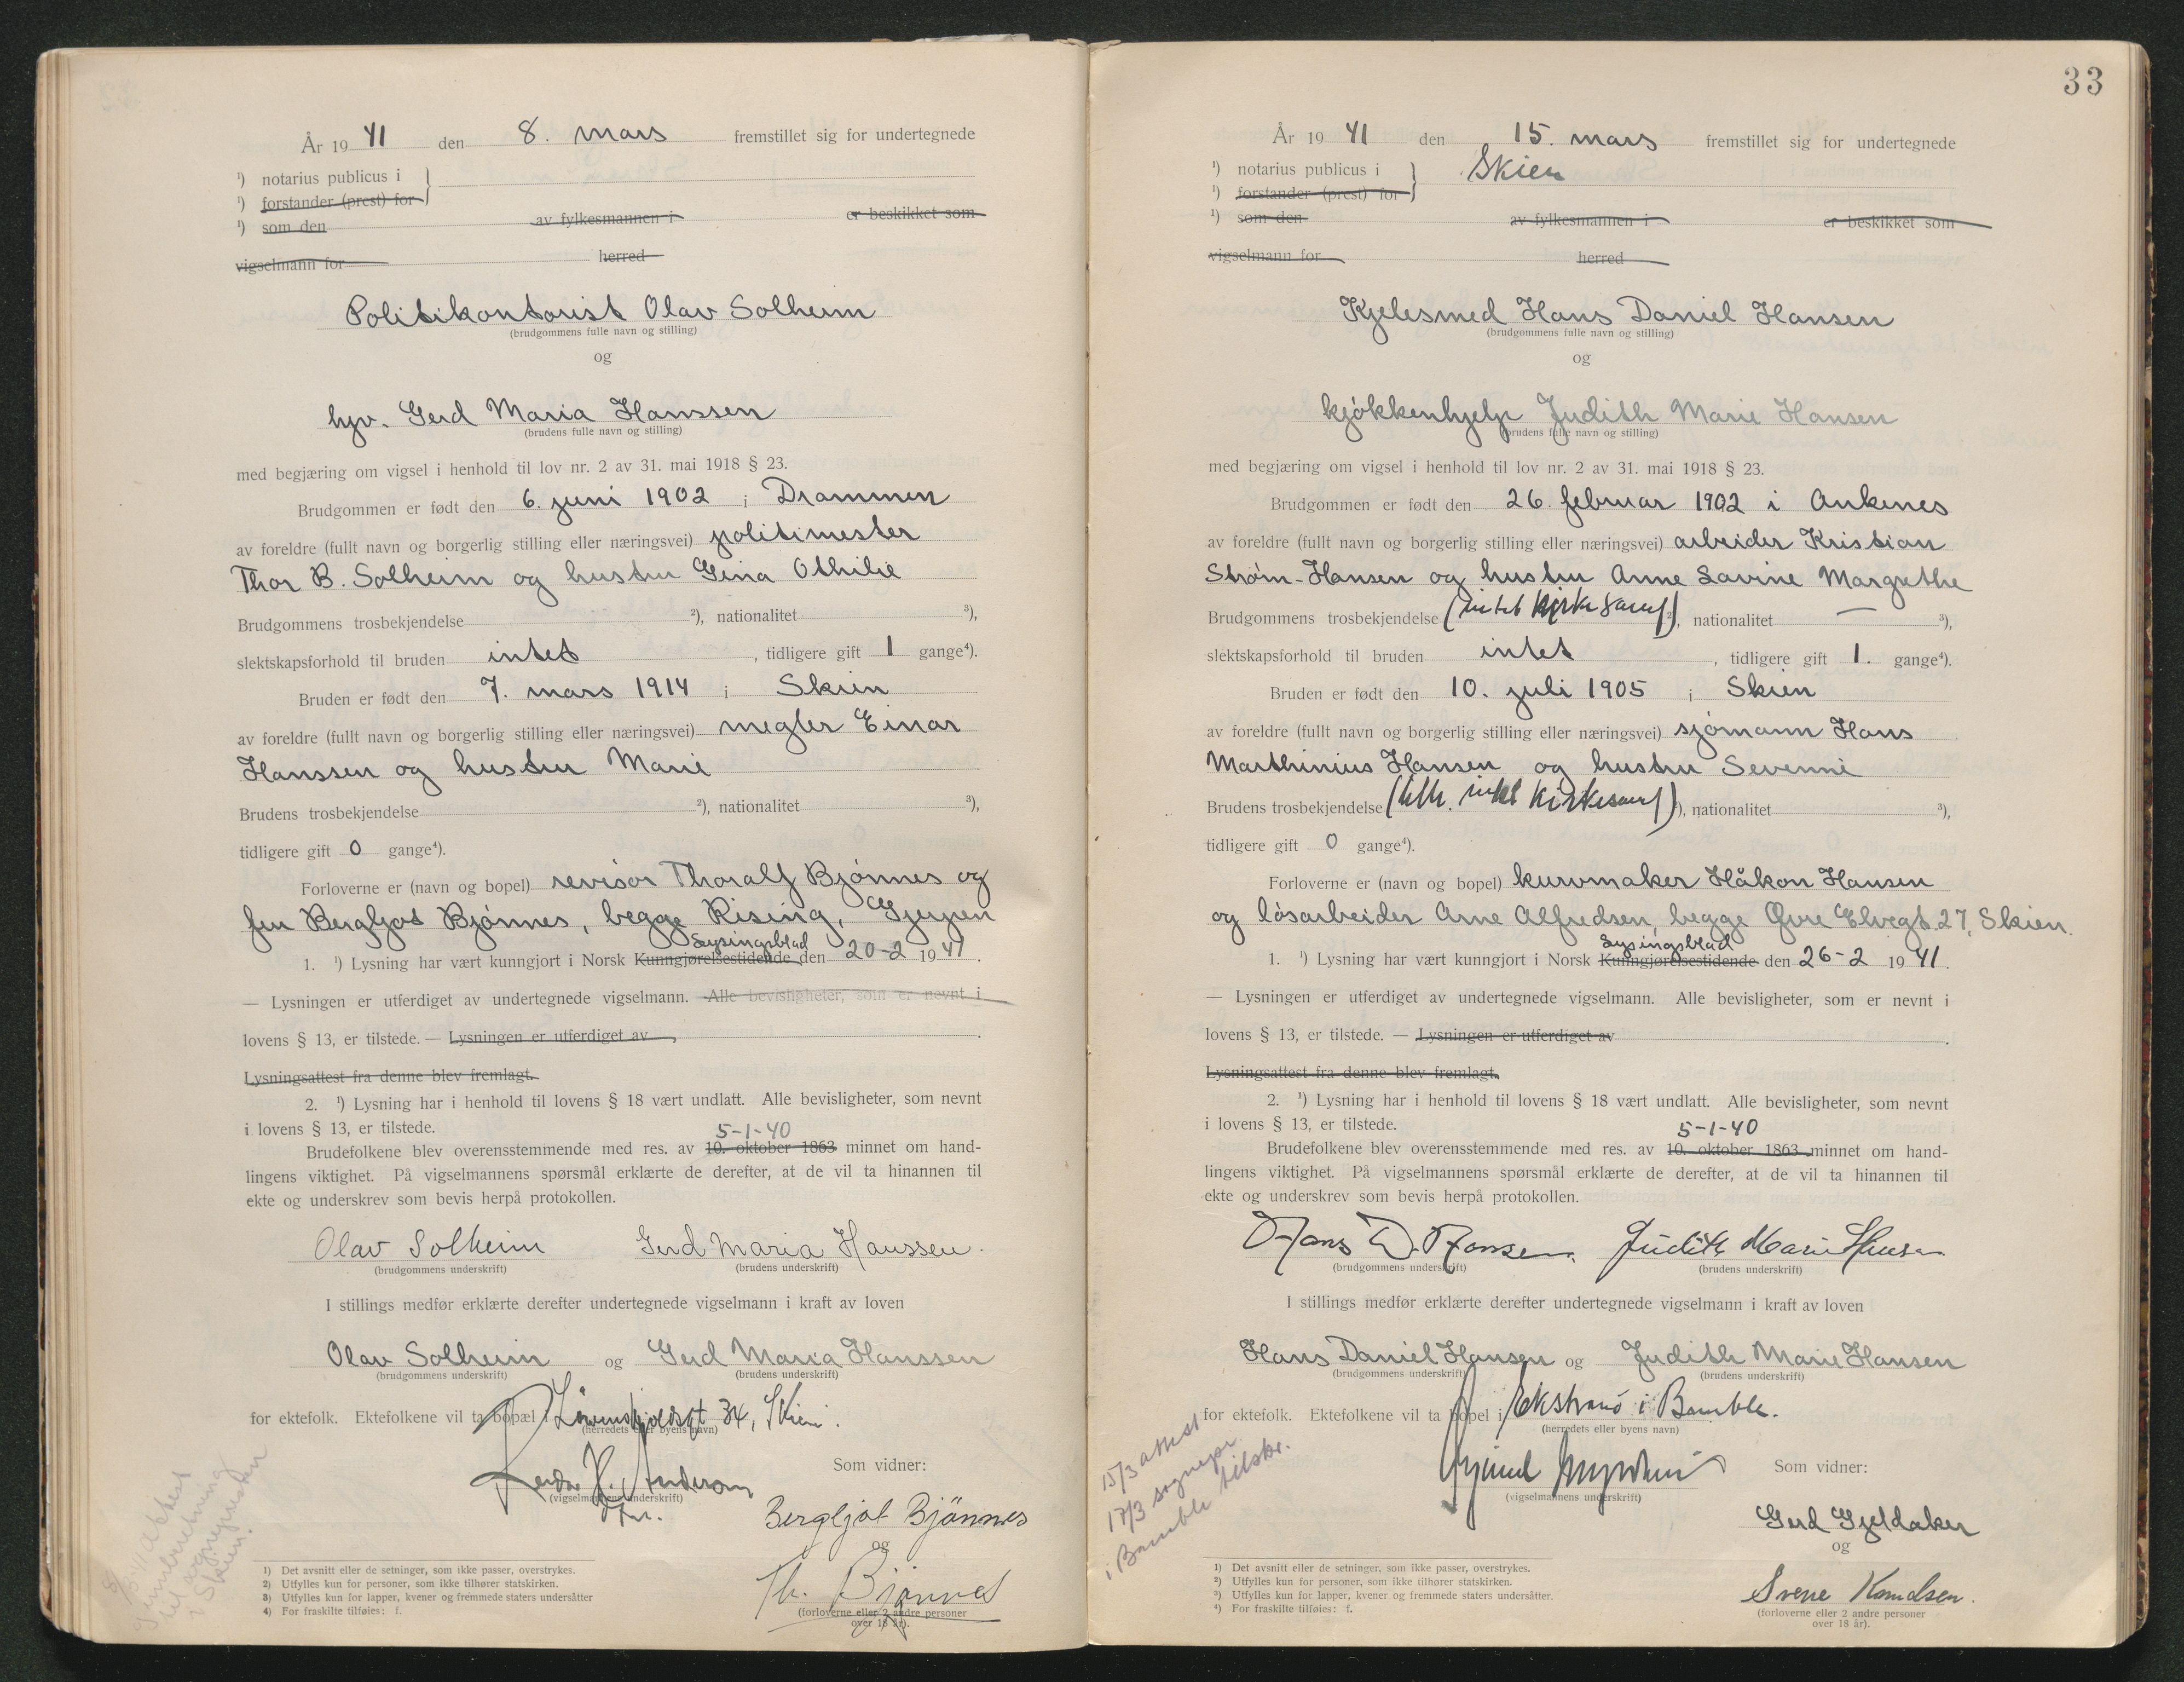 År 19 41 den 8. mars fremstillet sig for undertegnede
¹) notarius publicus i
¹) forstander (prest) for
¹) som den av fylkesmannen i er beskikket som
vigselmann for herred
Politikontorist Olav Solheim
(brudgommens fulle navn og stilling)
og
hjv. Gerd Maria Hanssen
(brudens fulle navn og stilling)
med begjæring om vigsel i henhold til lov nr. 2 av 31. mai 1918 § 23.
Brudgommen er født den 6. juni 1902 i Drammen
av foreldre (fullt navn og borgerlig stilling eller næringsvei) politimester
Thor B. Solheim og hustru Gina Othilie
Brudgommens trosbekjendelse ²), nationalitet ³),
slektskapsforhold til bruden intet, tidligere gift 1 gange⁴).
Bruden er født den 7. mars 1914 i Skien
av foreldre (fullt navn og borgerlig stilling eller næringsvei) megler Einar
Hanssen og hustru Marie
Brudens trosbekjendelse ²), nationalitet ³),
tidligere gift 0 gange⁴).
Forloverne er (navn og bopel) revisor Thoralf Bjønnes og
fru Bergljot Bjønnes, begge Rising, Gjerpen
Lysingsblad
1. ¹) Lysning har vært kunngjort i Norsk Kunngjørelsestidende den 20-2 19 41.
— Lysningen er utferdiget av undertegnede vigselmann. Alle bevisligheter, som er nevnt i
lovens § 13, er tilstede. — Lysningen er utferdiget av .
Lysningsattest fra denne blev fremlagt.
2. ¹) Lysning har i henhold til lovens § 18 vært undlatt. Alle bevisligheter, som nevnt
i lovens § 13, er tilstede.
5-1-40
Brudefolkene blev overensstemmende med res. av 10. oktober 1863 minnet om hand-
lingens viktighet. På vigselmannens spørsmål erklærte de derefter, at de vil ta hinannen til
ekte og underskrev som bevis herpå protokollen.
Olav Solheim Gerd Maria Hanssen.
(brudgommens underskrift) (brudens underskrift)
I stillings medfør erklærte derefter undertegnede vigselmann i kraft av loven
Olav Solheim og Gerd Maria Hanssen
(brudgommens underskrift) (brudens underskrift)
for ektefolk. Ektefolkene vil ta bopæl i Løvenskjoldsgt 34, Skien.
(herredets eller byens navn)
Som vidner:
H. Anderson
(vigselmannens underskrift)
Bergljot Bjönnes
og
Th. Bjønnes
(forloverne eller 2 andre personer
over 18 år).
¹) Det avsnitt eller de setninger, som ikke passer, overstrykes.
²) Utfylles kun for personer, som ikke tilhører statskirken.
³) Utfylles kun for lapper, kvener og fremmede staters undersåtter
⁴) For fraskilte tilføies: f.
Skien.
33
År 19 41 den 15. mars fremstillet sig for undertegnede
¹) notarius publicus i Skien
¹) forstander (prest) for
¹) som den av fylkesmannen i er beskikket som
vigselmann for herred
Kjelesmed Hans Daniel Hansen
(brudgommens fulle navn og stilling)
og
kjøkkenhjelp Judith Marie Hansen
(brudens fulle navn og stilling)
med begjæring om vigsel i henhold til lov nr. 2 av 31. mai 1918 § 23.
Brudgommen er født den 26. februar 1902 i Ankenes
av foreldre (fullt navn og borgerlig stilling eller næringsvei) arbeider Kristian
Strøm-Hansen og hustru Anne Lavine Margrethe
Brudgommens trosbekjendelse (intet kirkesamf) ²), nationalitet — ³),
slektskapsforhold til bruden intet, tidligere gift 1. gange⁴).
Bruden er født den 10. juli 1905 i Skien
av foreldre (fullt navn og borgerlig stilling eller næringsvei) sjømann Hans
Marthinius Hansen og hustru Severine
Brudens trosbekjendelse (tilh. intet kirkesamf) ²), nationalitet ³),
tidligere gift 0 gange⁴).
Forloverne er (navn og bopel) kurvmaker Håkon Hansen
og løsarbeider Arne Alfredsen, begge Øvre Elvegt. 27, Skien.
Lysingsblad
1. ¹) Lysning har vært kunngjort i Norsk Kunngjørelsestidende den 26-2 19 41.
— Lysningen er utferdiget av undertegnede vigselmann. Alle bevisligheter, som er nevnt i
lovens § 13, er tilstede. — Lysningen er utferdiget av .
Lysningsattest fra denne blev fremlagt.
2. ¹) Lysning har i henhold til lovens § 18 vært undlatt. Alle bevisligheter, som nevnt
i lovens § 13, er tilstede.
5-1-40
Brudefolkene blev overensstemmende med res. av 10. oktober 1863 minnet om hand-
lingens viktighet. På vigselmannens spørsmål erklærte de derefter, at de vil ta hinannen til
ekte og underskrev som bevis herpå protokollen.
Hans D. Hansen. Judith Marie Hansen
(brudgommens underskrift) (brudens underskrift)
I stillings medfør erklærte derefter undertegnede vigselmann i kraft av loven
Hans Daniel Hansen og Judith Marie Hansen
(brudgommens underskrift) (brudens underskrift)
for ektefolk. Ektefolkene vil ta bopel i Ekstrand i Bamble.
(herredets eller byens navn)
Som vidner:
(vigselmannens underskrift)
Gerd Gjeldaker
og
Svene Knudsen.
(forloverne eller 2 andre personer
over 18 år).
15/3 attest
17/3 sognepr.
i Bamble tilskr.
¹) Det avsnitt eller de setninger, som ikke passer, overstrykes.
²) Utfylles kun for personer, som ikke tilhører statskirken.
³) Utfylles kun for lapper, kvener og fremmede staters undersåtter.
⁴) For fraskilte tilføies: f.